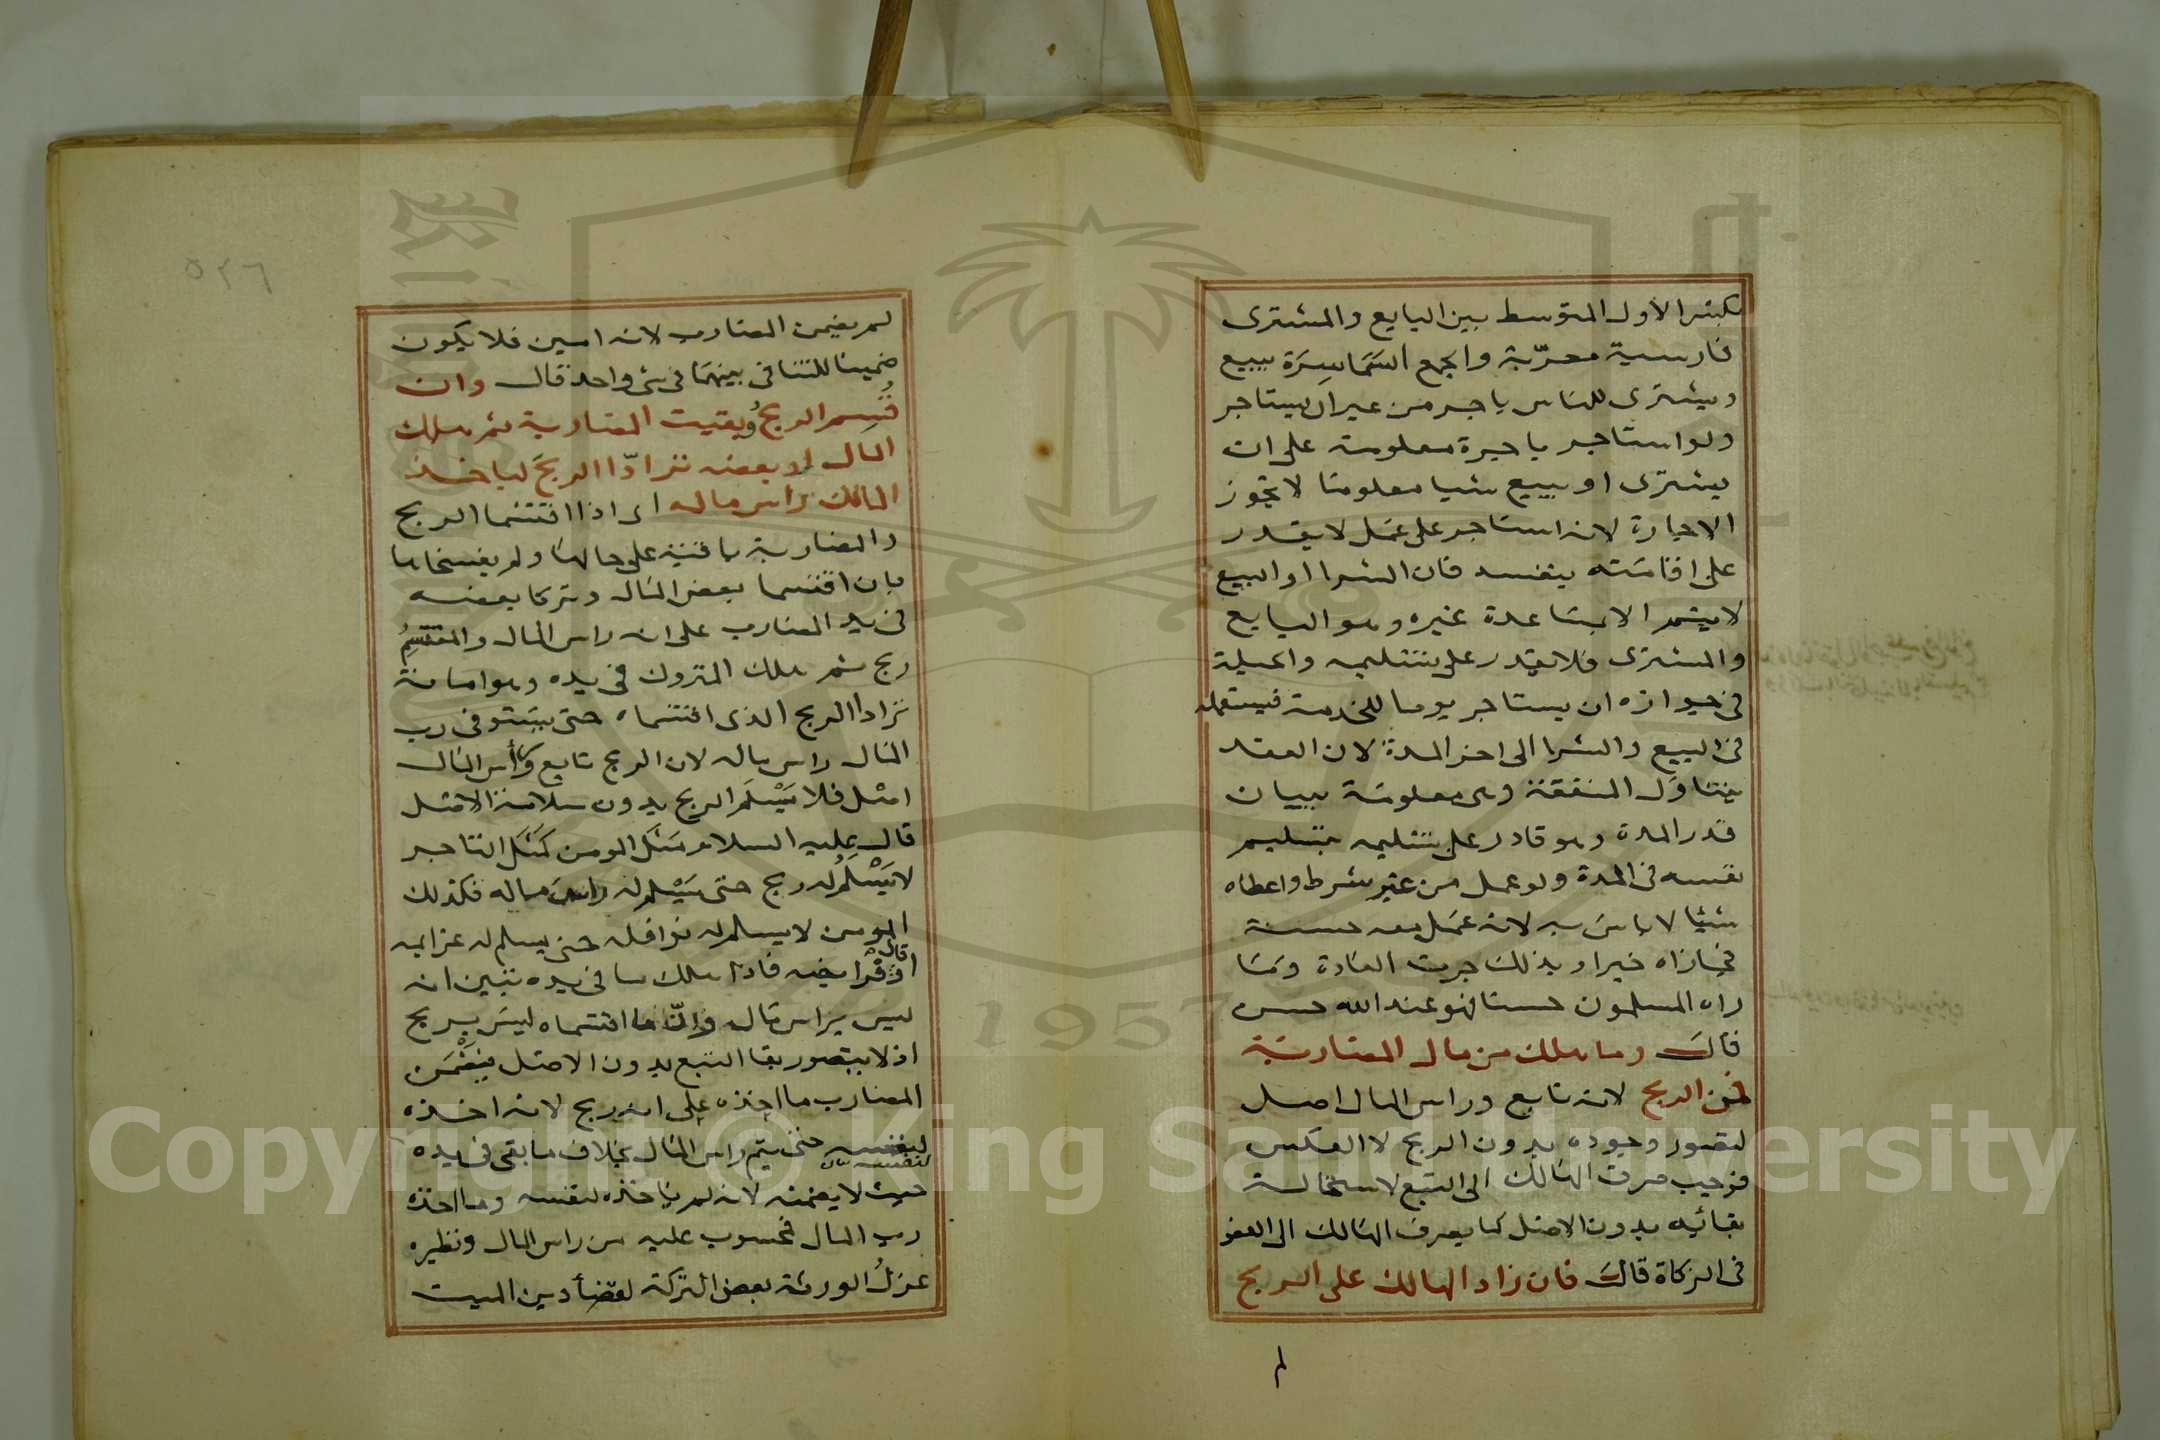 بكسر الاول المتوسط بين البايع والمشترى
فارسية معربة والجمع السَمَاسِرَة يبيع
ويشترى للناس باجر من غير ان يستاجر
ولو استاجر باجرة معلومة على ان
يشترى او يبيع شيا معلوما لا تجوز
الاجارة لانه استاجر على عمل لا يقدر
على اقامته بنفسه فان الشرا او البيع
لا يتم الا بمساعدة غيره وهو البايع
والمشترى فلا يقدر على تسليمه والحيلة
فى جوازه ان يستاجر يوما للخدمة فيستعمله
فى البيع والشرا الى اخر المدة لان العقد
يتناول المنفعة وهى معلومة ببيان
قدر المدة وهو قادر على تسليمه بتسليم
نفسه فى المدة ولو عمل من غير شرط واعطاه
شيئا لا باس به لانه عمل معه حسنة
فجازاه خيرا وبذلك جرت العادة وما
راه المسلمون حسنا فهو عند الله حسن
قال وما هلك من مال المضاربة
فمن الربح لانه تابع وراس المال اصل
لتصور وجوده بدون الربح لا العكس
فوجب صرف الهالك الى التبع لاستحالة
بقائه بدون الاصل كما يصرف الهالك الى العفو
فى الزكاة قال فان زاد الهالك على الربح
لم
٥٢٦
لم يضمن المضارب لانه امين فلا يكون
ضمينا للتنافى بينهما فى شى واحد قال وان
قُسِم الربح وبقيت المضاربة ثم هلك
المال او بعضه ترادّا الربح لياخذ
المالك راس ماله اى اذا اقتسما الربح
والمضاربة باقية على حالها ولم يفسخاها
بان اقتسما بعض المال وتركا بعضه
فى يد المضارب على انه راس المال والمقتسم
ربح ثم هلك المتروك فى يده وهو امانة
ترادا الربح الذى اقتسماه حتى يستوفى رب
المال راس ماله لان الربح تابع وراس المال
اصل فلا يَسْلَم الربح بدون سلامة الاصل
قال عليه السلام مثل المومن كمَثَل التاجر
لا يَسْلَمُ له ربح حتى يَسْلم له راس ماله فكذلك
المومن لا يسلم له نوافله حتى يسلم له عزايمه
او قال فرايضه فاذا هلك ما فى يده تبين انه
ليس براس مال وانّ ما اقتسماه ليس بربح
اذ لا يتصور بقا التبع بدون الاصل فيَضْمَن
المضارب ما اخذه على انه ربح لانه اخذه
لنفسه حتى يتم راس المال بخلاف ما بقى فى يده
لنفسه بيان
حيث لا يضمنه لانه لم ياخذه لنفسه وما اخذه
رب المال محسوب عليه من راس المال ونظيره
عزلُ الورثة بعض التركة لقضأ دين الميت
Copyright © King Saud University
1957